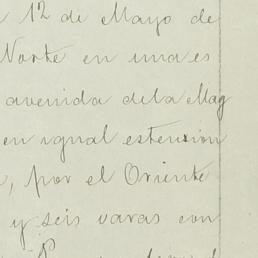 12 de Mayo de
Norte en una es
avenida dela Mag
en igual estension
, por el Oriente
y seis varas con